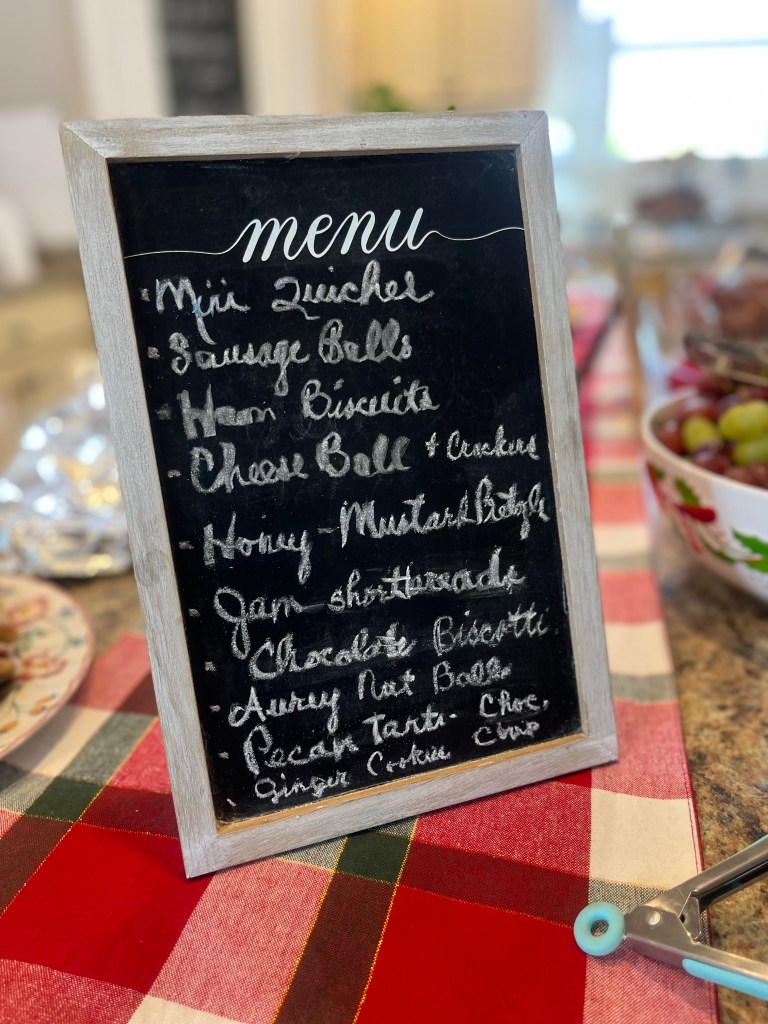 menu
- Mini Quiches
- Sausage Balls
- Ham Biscuits
- Cheese Ball + Crackers
- Honey-Mustard Pretzels
- Jam shortbreads
- Chocolate Biscotti
- Nut Balls
- Pecan Tarts - Choc. Chip
- Ginger Cookies